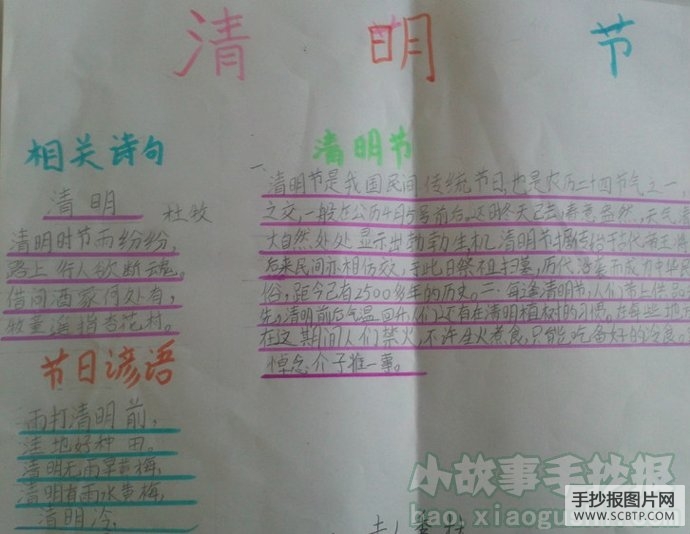 清明节
相关诗句
清明
杜牧
清明时节雨纷纷,
路上行人欲断魂。
借问酒家何处有,
牧童遥指杏花村。
节日谚语
雨打清明前,
洼地好种田。
清明无雨旱黄梅,
清明有雨水黄梅,
清明冷,
清明节
一、清明节是我国民间传统节日,也是农历二十四节气之一,
之交,一般在公历4月5号前后,这时冬天已去,春意盎然,天气清
大自然处处显示出勃勃生机。清明节据传始于古代帝王将
后来民间亦相仿效,于此日祭祖扫墓,历代沿袭而成为中华民
俗,距今已有2500多年的历史。二、每逢清明节,人们带上供品
先,清明前后气温回升,们还有在清明植树的习惯。在每些地方
在这期间人们禁火,不许生火煮食,只能吃备好的冷食。
悼念介子推一事。
小故事手抄报
bao.xiaogu
手抄报图片网
WWW.SCBTP.COM